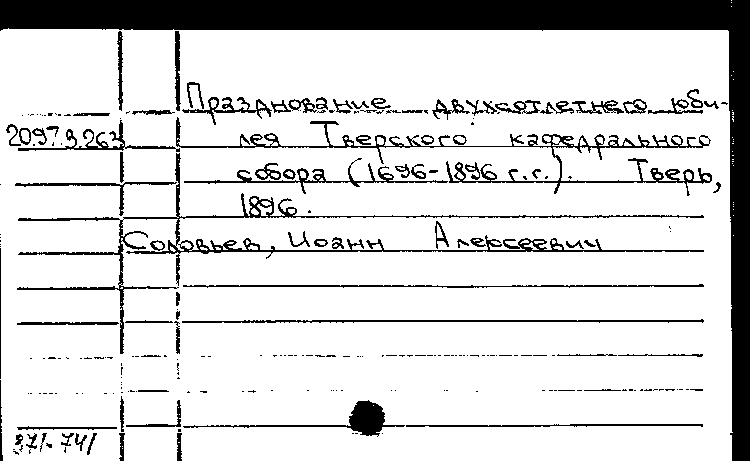 Празднование двухсотлетнего юби-
2097.9.263 лея Тверского кафедрального
собора (1696-1896 г.г.). Тверь,
1896.
Соловьев, Иоанн Алексеевич
371-741